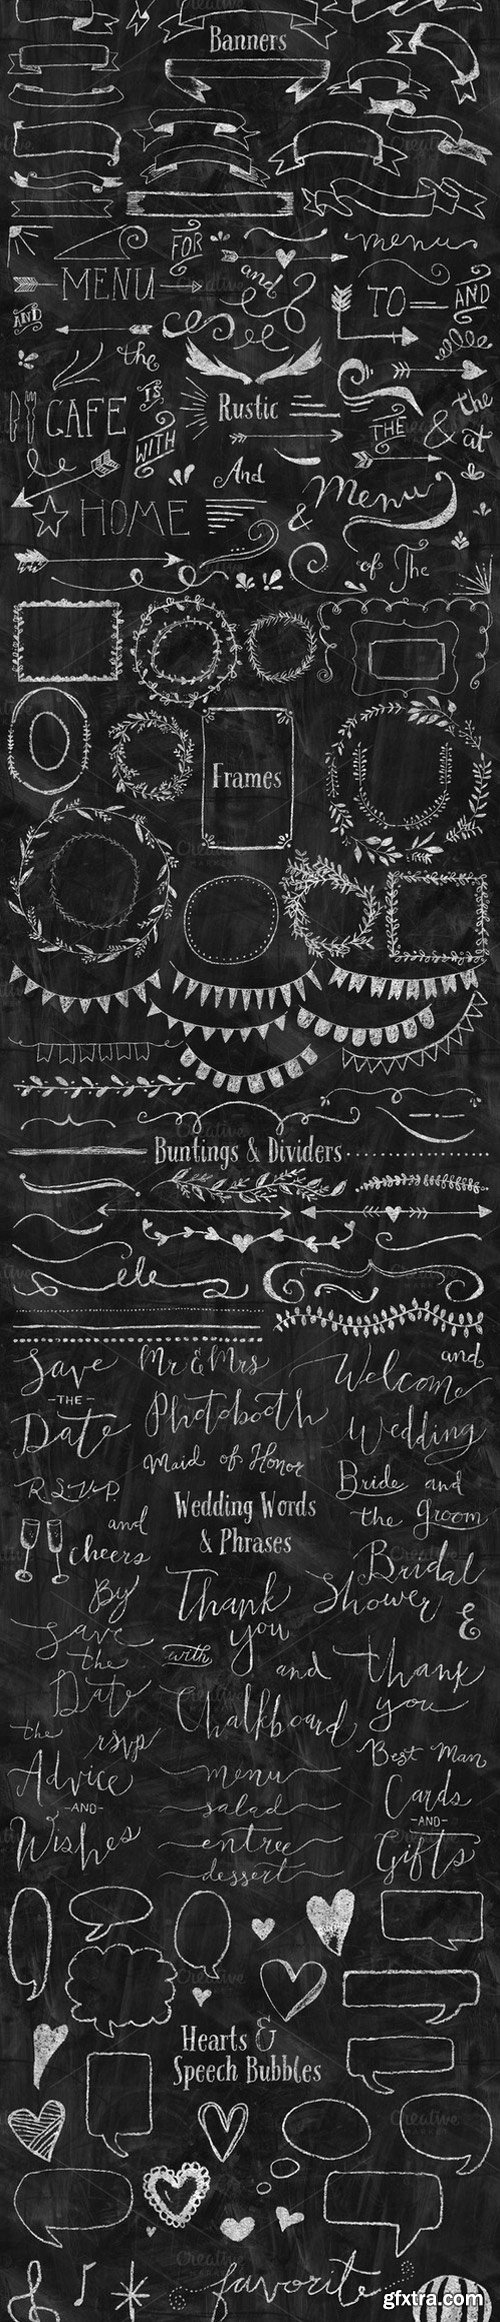 Banners
FOR
menu
MENU
and
TO
AND
AND
the
CAFE
IS
Rustic
the
WITH
THE
& at
And
Menu
HOME
&
of The
Frames
Buntings & Dividers
Save
Mr & Mrs
and
-THE-
Welcome
Date
Photobooth
Wedding
Maid of Honor
R.S.V.P.
Bride and
Wedding Words
the Groom
and
& Phrases
cheers
Bridal
By
Thank
Shower
&
Save
you
the
with
and
thank
Date
you
Chalkboard
the
rsvp
Best Man
Advice
menu
Cards
-AND-
salad
-AND-
Wishes
entree
Gifts
dessert
Hearts &
Speech Bubbles
favorite
gfxtra.com